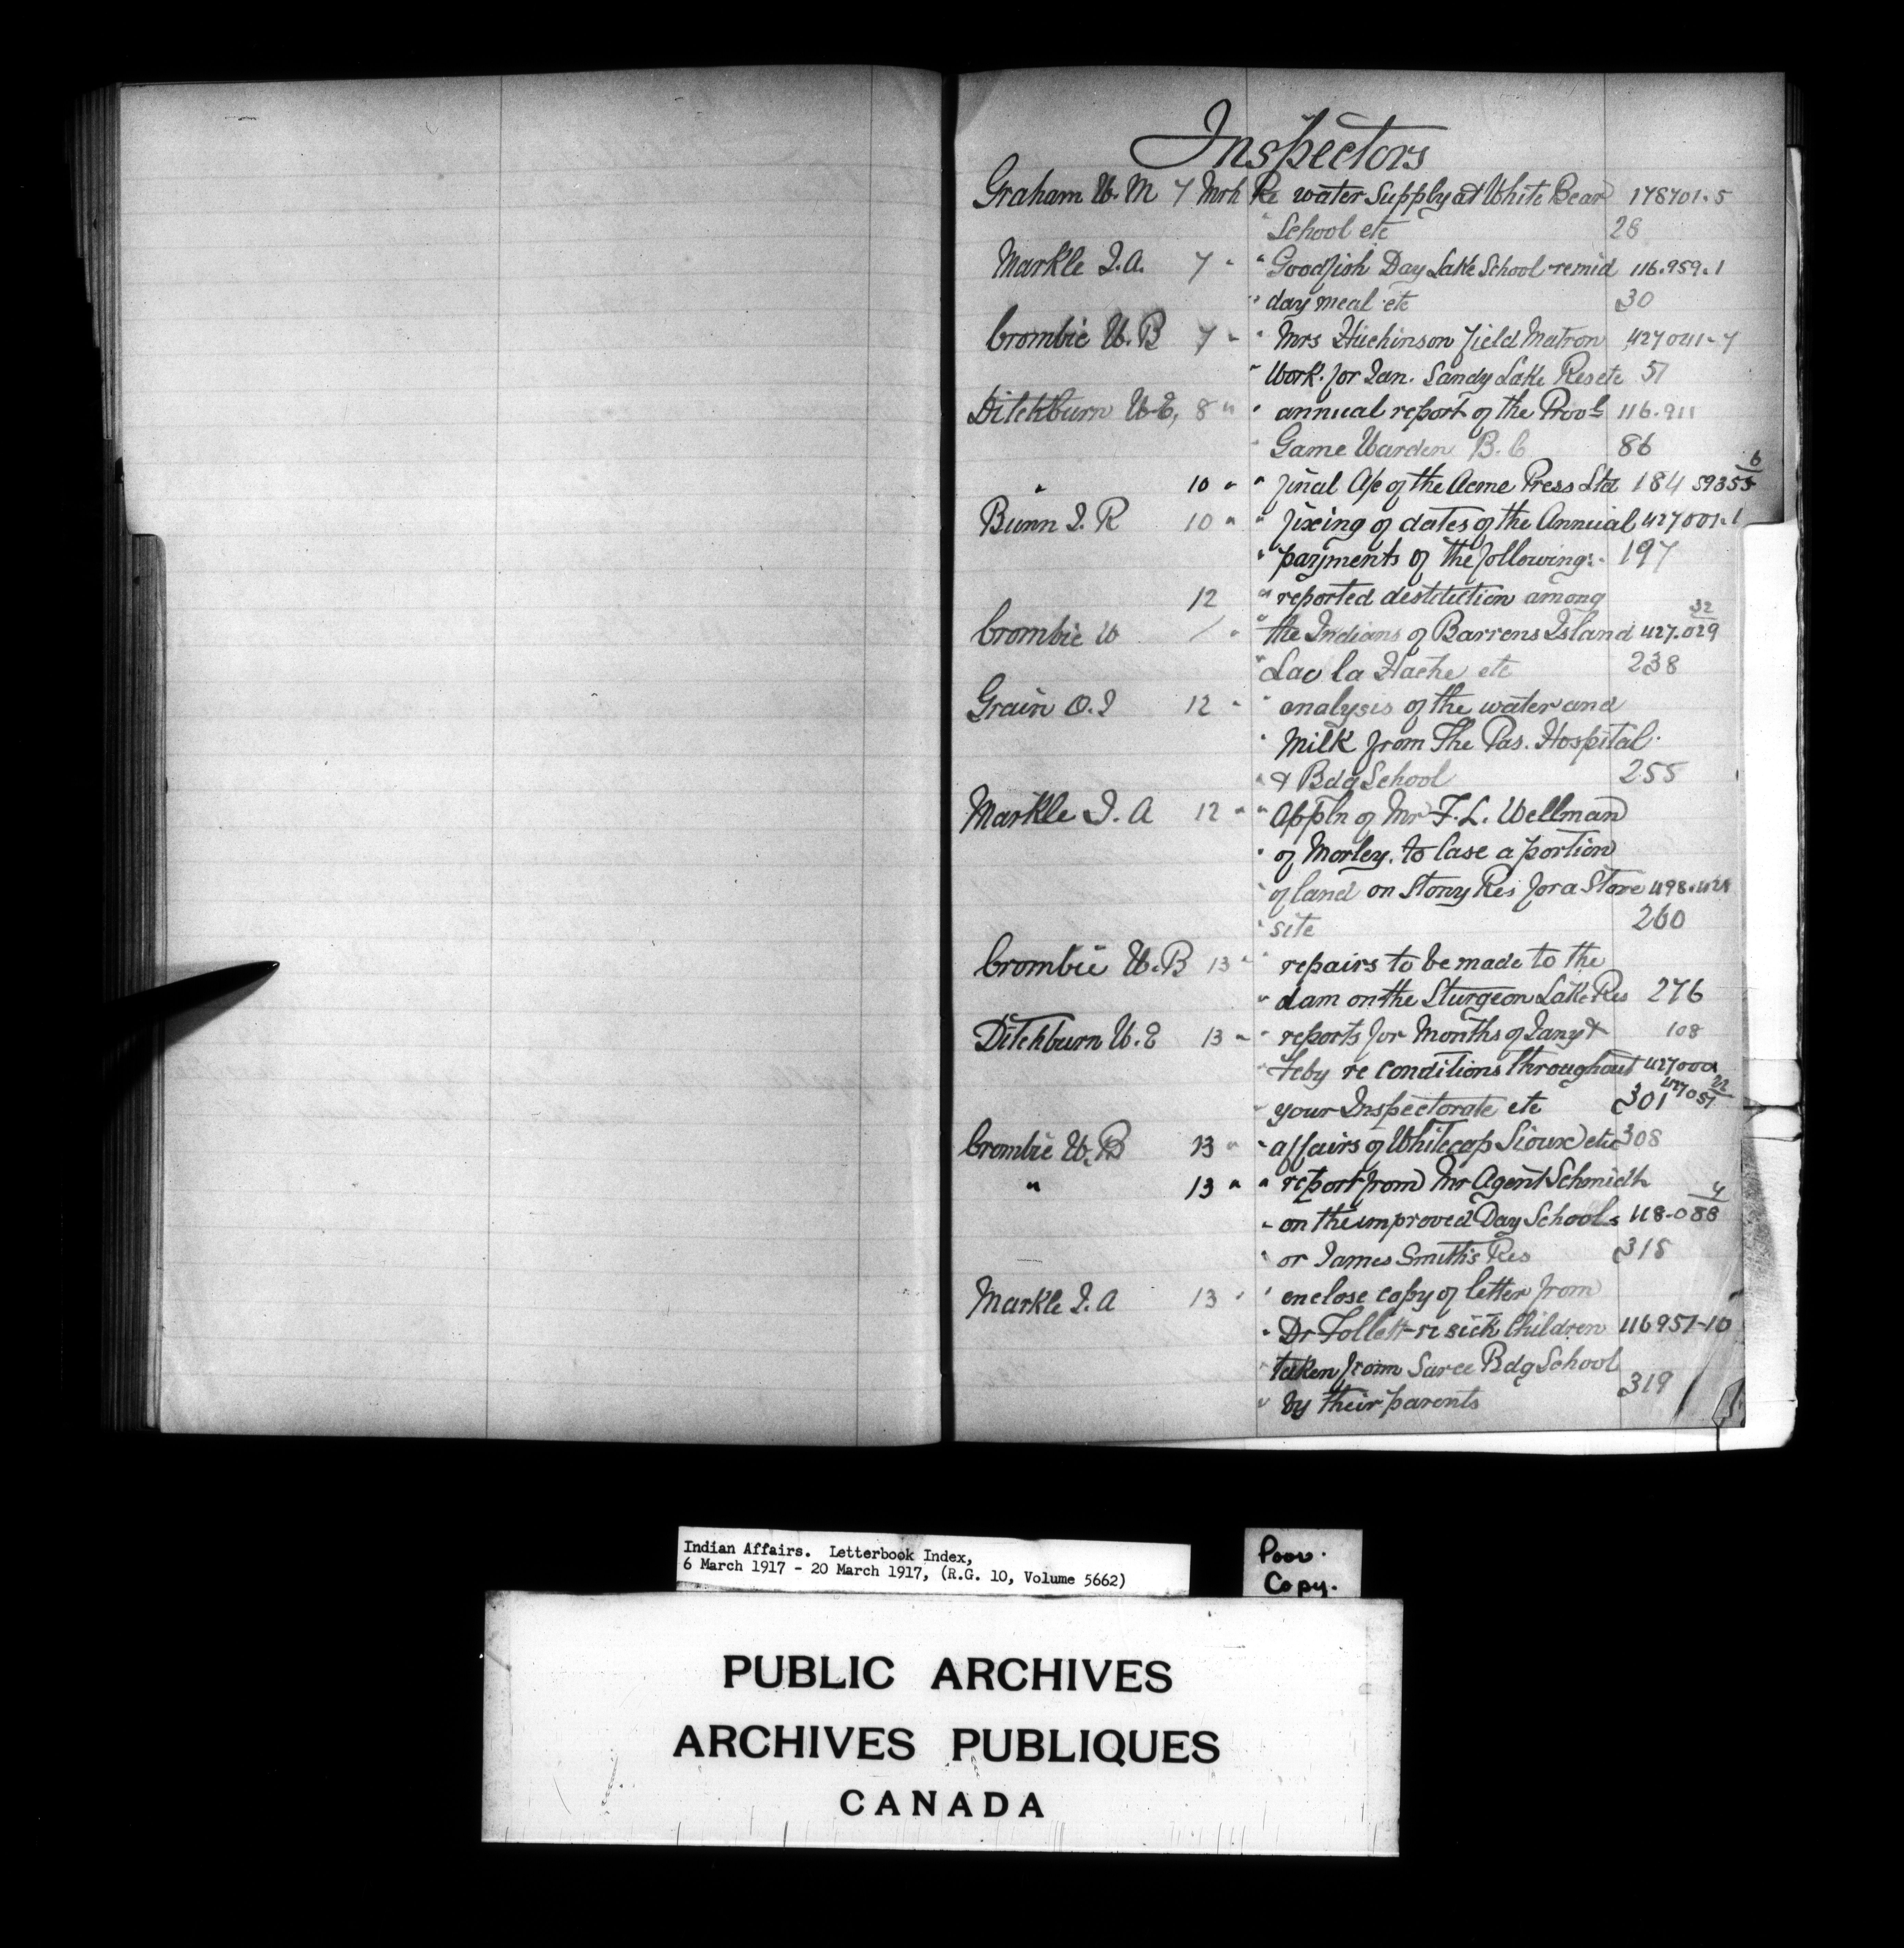 Inspectors
Graham W. M 7 Mrh Re water Supply at White Bear 178701.5
" School etc 28
Markle J. A. 7 " " Goodfish Day Lake School remid 116.959.1
" day meal etc 30
Crombie W. B 7 " " Mrs Huchinson field Matron 427041-7
" Work for Jan. Sandy Lake Res etc 51
Ditchburn W. E, 8 " " annual report of the Provl 116.911
" Game Warden B. C 86
" 10 " " final A/c of the Acme Press Ltd 184 59355 6
Bunn J. R 10 " " fixing of dates of the Annual 427001.1
" payments of the following:- 197
12 " reported destitution among
Crombie W " " the Indians of Barrens Island 427.029 32
" Lac la Hache etc 238
Grain O. J 12 " " analysis of the water and
" Milk from The Pas. Hospital
" & Bdg School 255
Markle J. A 12 " " Appln of Mr F. L. Wellman
" of Morley. to lase a portion
" of land on Stony Res for a Store 498.421
" site 260
Crombie W. B 13 " " repairs to be made to the
" dam on the Sturgeon Lake Res 276
Ditchburn W. E 13 " " reports for Months of Jany & 108
" Feby re conditions throughout 427000
" your Inspectorate etc 301 427051 22
Crombie W. B 13 " " affairs of Whitecap Sioux etc 308
" 13 " " report from Mr Agent Schmidt
" on the improved Day Schools 118-088 4
" or James Smith's Res 315
Markle J. A 13 " " enclose copy of letter from
" Dr Follett re sick Children 116951-10
" taken from Sarce Bdg School
" by their parents 319
Indian Affairs. Letterbook Index,
6 March 1917 - 20 March 1917, (R.G. 10, Volume 5662)
Poor.
Copy.
PUBLIC ARCHIVES
ARCHIVES PUBLIQUES
CANADA